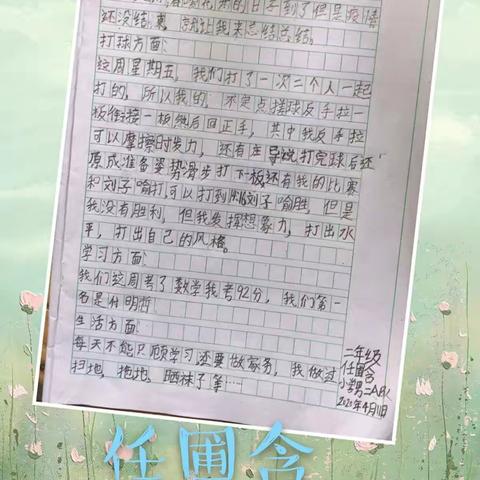 的日子到了但是疫情
还没结束,就让我来总结总结。
打球方面:
这周星期五,我们打了一次三个人一起
打的,所以我的,不定点搓球反手拉一
板衔接一板然后回正手,其中我反手拉
可以摩擦时发力,还有庄导说打完球后还
原成准备姿势滑步打下板,还有我的比赛
和刘子喻打,可以打到刘子喻胜,但是
我没有胜利,但我发挥想象力,打出水
平,打出自己的风格。
学习方面:
我们这周考了数学我考92分,我们第一
名是付明哲
生活方面:
每天不能只顾学习还要做家务,我做过
扫地,拖地,晒袜子等……
二年级
任圃含
小学男二A队
任圃含